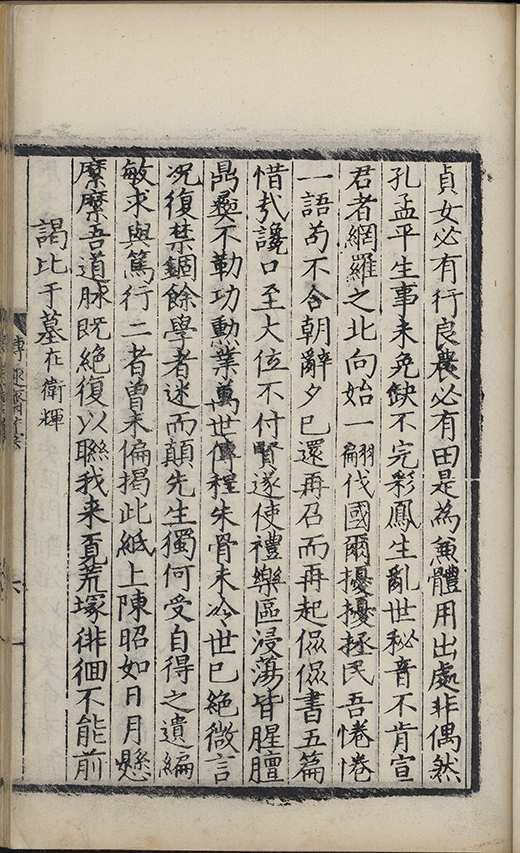 貞女必有行良農必有田是為兼體用出處非偶然
孔孟平生事未免缺不完彩鳳生亂世秘音不肯宣
君者網羅之北向始一翩伐國爾擾擾拯民吾惓惓
一語苟不合朝辭夕已還再召而再起偘偘書五篇
惜哉讒口至大位不付賢遂使禮樂區浸蕩皆腥膻
鼎彝不勒功勳業萬世傳程朱骨未冷世已絕微言
况復禁錮餘學者迷而顛先生獨何受自得之遺編
敏求與篤行二者曾未偏揭此紙上陳昭如日月懸
縻縻吾道脉既絕復以聯我来覔荒塚徘徊不能前
謁比干墓在衛輝